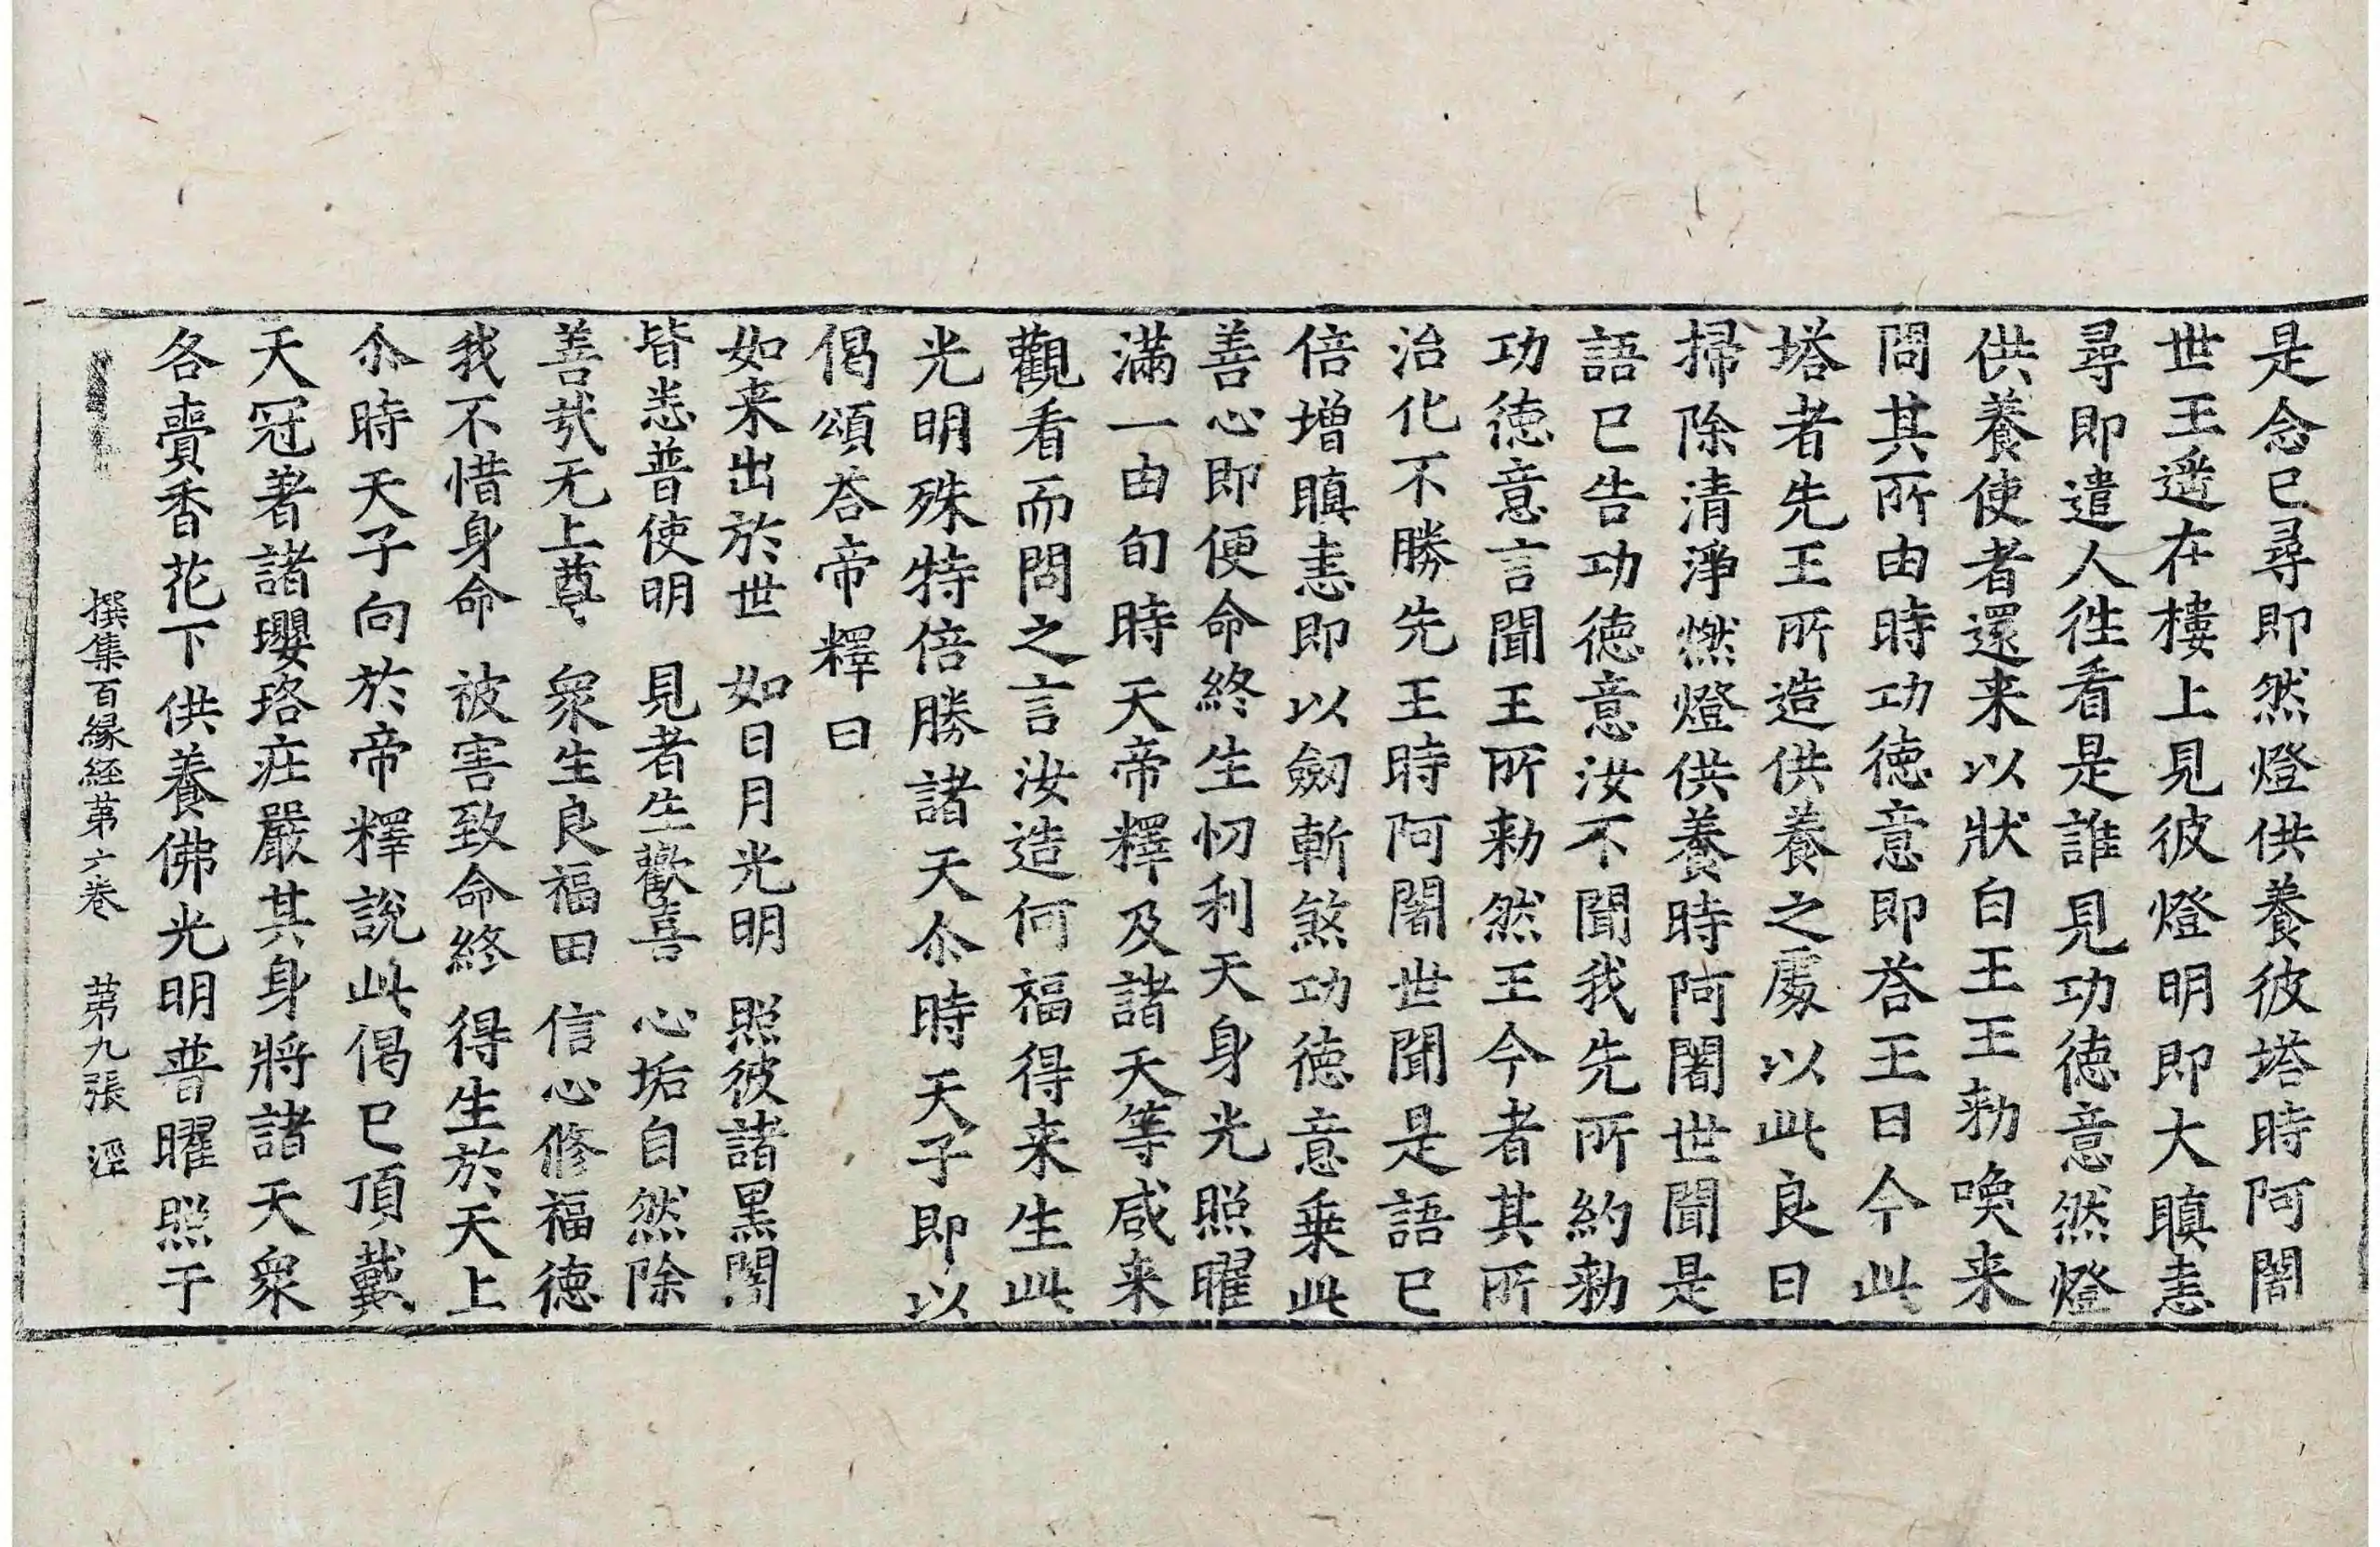 是念已尋即然燈供養彼塔時阿闍
世王遥在樓上見彼燈明即大瞋恚
尋即遣人徃看是誰見功徳意然燈
供養使者還来以狀白王王勑喚来
問其所由時功徳意即荅王曰今此
塔者先王所造供養之處以此良日
掃除清淨燃燈供養時阿闍世聞是
語已告功徳意汝不聞我先所約勑
功徳意言聞王所勑然王今者其所
治化不勝先王時阿闍世聞是語已
倍増瞋恚即以劒斬煞功徳意乗此
善心即便命終生忉利天身光照曜
滿一由旬時天帝釋及諸天等咸来
觀看而問之言汝造何福得来生此
光明殊特倍勝諸天尒時天子即以
偈頌荅帝釋曰
如来出於世　如日月光明　照彼諸黒闇
皆悉普使明　見者生歡喜　心垢自然除
善㢤无上尊　衆生良福田　信心修福徳
我不惜身命　被害致命終　得生於天上
尒時天子向於帝釋説此偈已頂戴
天冠著諸瓔珞庄嚴其身將諸天衆
各賷香花下供養佛光明普曜照于
撰集百縁経苐六巻　苐九張　涇